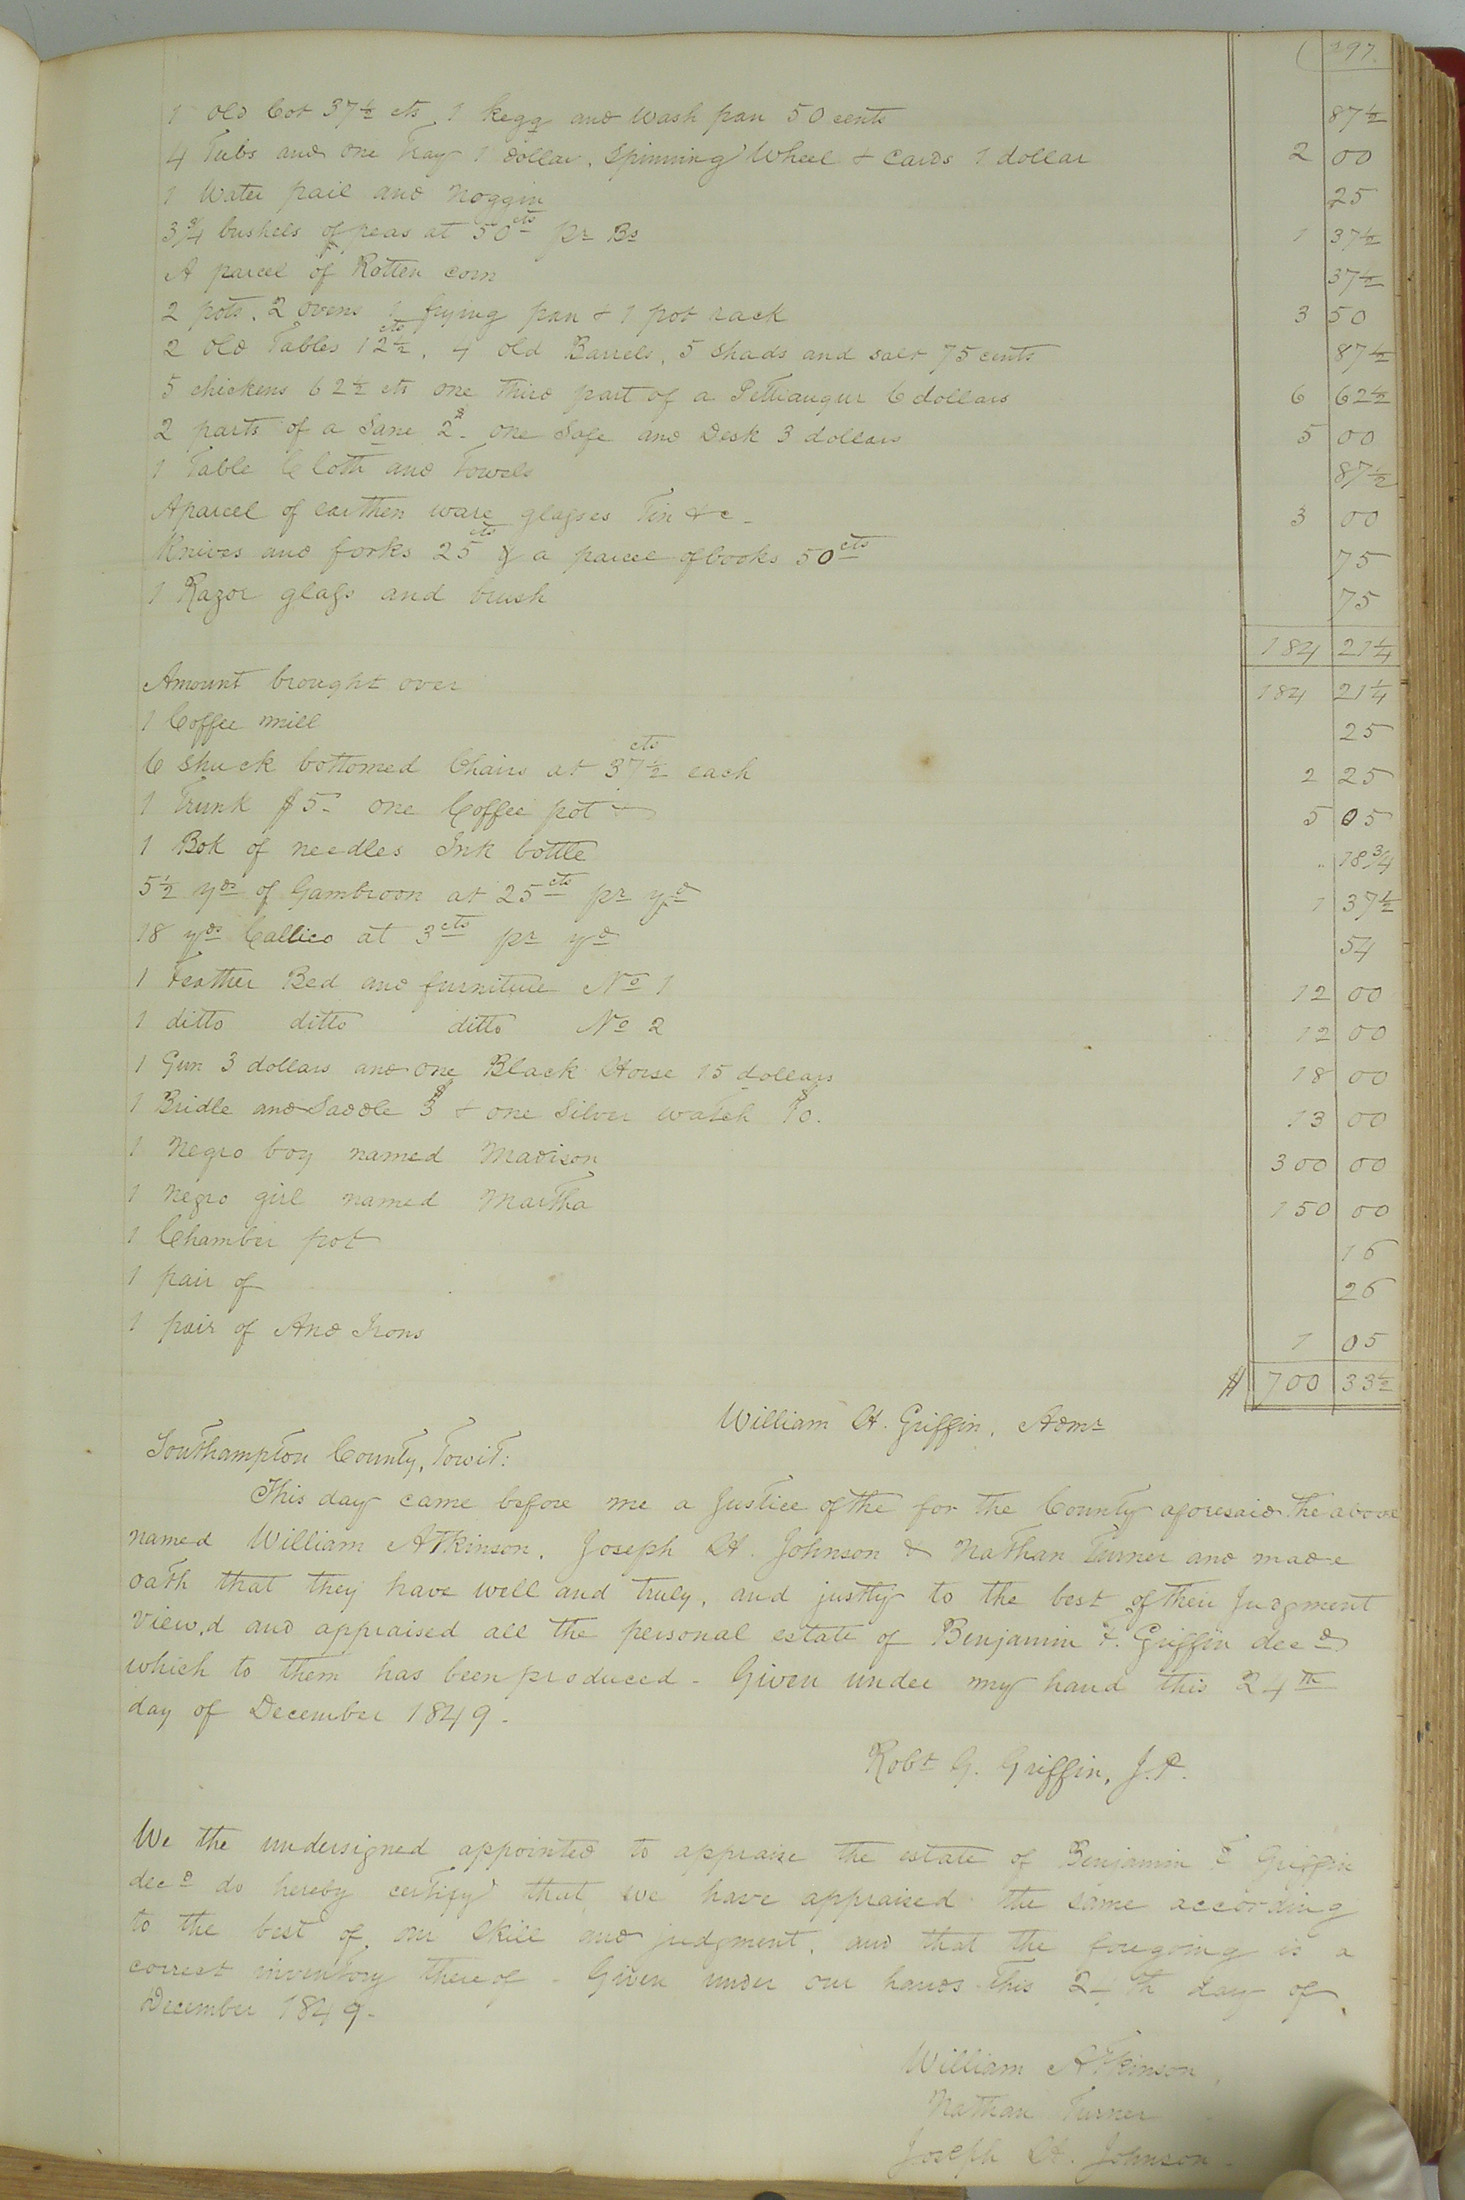 297.
1 Old Cot 37½ cts 1 kegg and wash pan 50 cents 87½
4 Tubs and one Tray 1 dollar. Spinning Wheel & Cards 1 dollar 2 00
1 Water pail and noggin 25
3¾ bushels of peas at 50cts pr Bs 1 37½
A parcel of Rotten corn 37½
2 pots. 2 ovens 1 frying pan & 1 pot rack 3 50
2 old Tables 12½ cts. 4 old Barrels, 5 shads and salt 75 cents 87½
5 chickens 62½ cts one third part of a Pettiaugur 6 dollars 6 62½
2 parts of a Sane 2$ - one Safe and Desk 3 dollars 5 00
1 Table Cloth and Towels 87½
A parcel of earthen ware glasses Tin &c - 3 00
Knives and forks 25cts & a parcel of books 50cts 75
1 Razor glass and brush 75
184 21¼
Amount brought over 184 21¼
1 Coffee mill 25
6 shuck bottomed Chairs at 37½ cts each 2 25
1 Trunk $5 - one Coffee pot 5 05
1 Bok of needles Ink bottle " 18¾
5½ yds of Gambroon at 25cts pr yd 1 37½
18 yds Callico at 3cts pr yd 54
1 Feather Bed and furniture No 1 12 00
1 ditto ditto ditto No 2 12 00
1 Gun 3 dollars and one Black Horse 15 dollars 18 00
1 Bridle and Saddle $3 & one Silver watch $10. 13 00
1 Negro boy named Madison 300 00
1 Negro girl named Martha 150 00
1 Chamber pot 16
1 pair of 26
1 pair of And Irons 1 05
$ 700 33½
William H. Griffin, Admr
Southampton County, Towit:
This day came before me a Justice of the for the County aforesaid the above
named William Atkinson, Joseph H. Johnson & Nathan Turner and made
oath that they have well and truly, and justly to the best of their Judgment
view,d and appraised all the personal estate of Benjamin F. Griffin decd
which to them has been produced - Given under my hand this 24th
day of December 1849 -
Robt G. Griffin, J.P.
We the undersigned appointed to appraise the estate of Benjamin F Griffin
decd do hereby certify that we have appraised the same according
to the best of our skill and judgment, and that the foregoing is a
correct inventory thereof - Given under our hands this 24th day of
December 1849 -
William Atkinson,
Nathan Turner
Joseph H. Johnson -